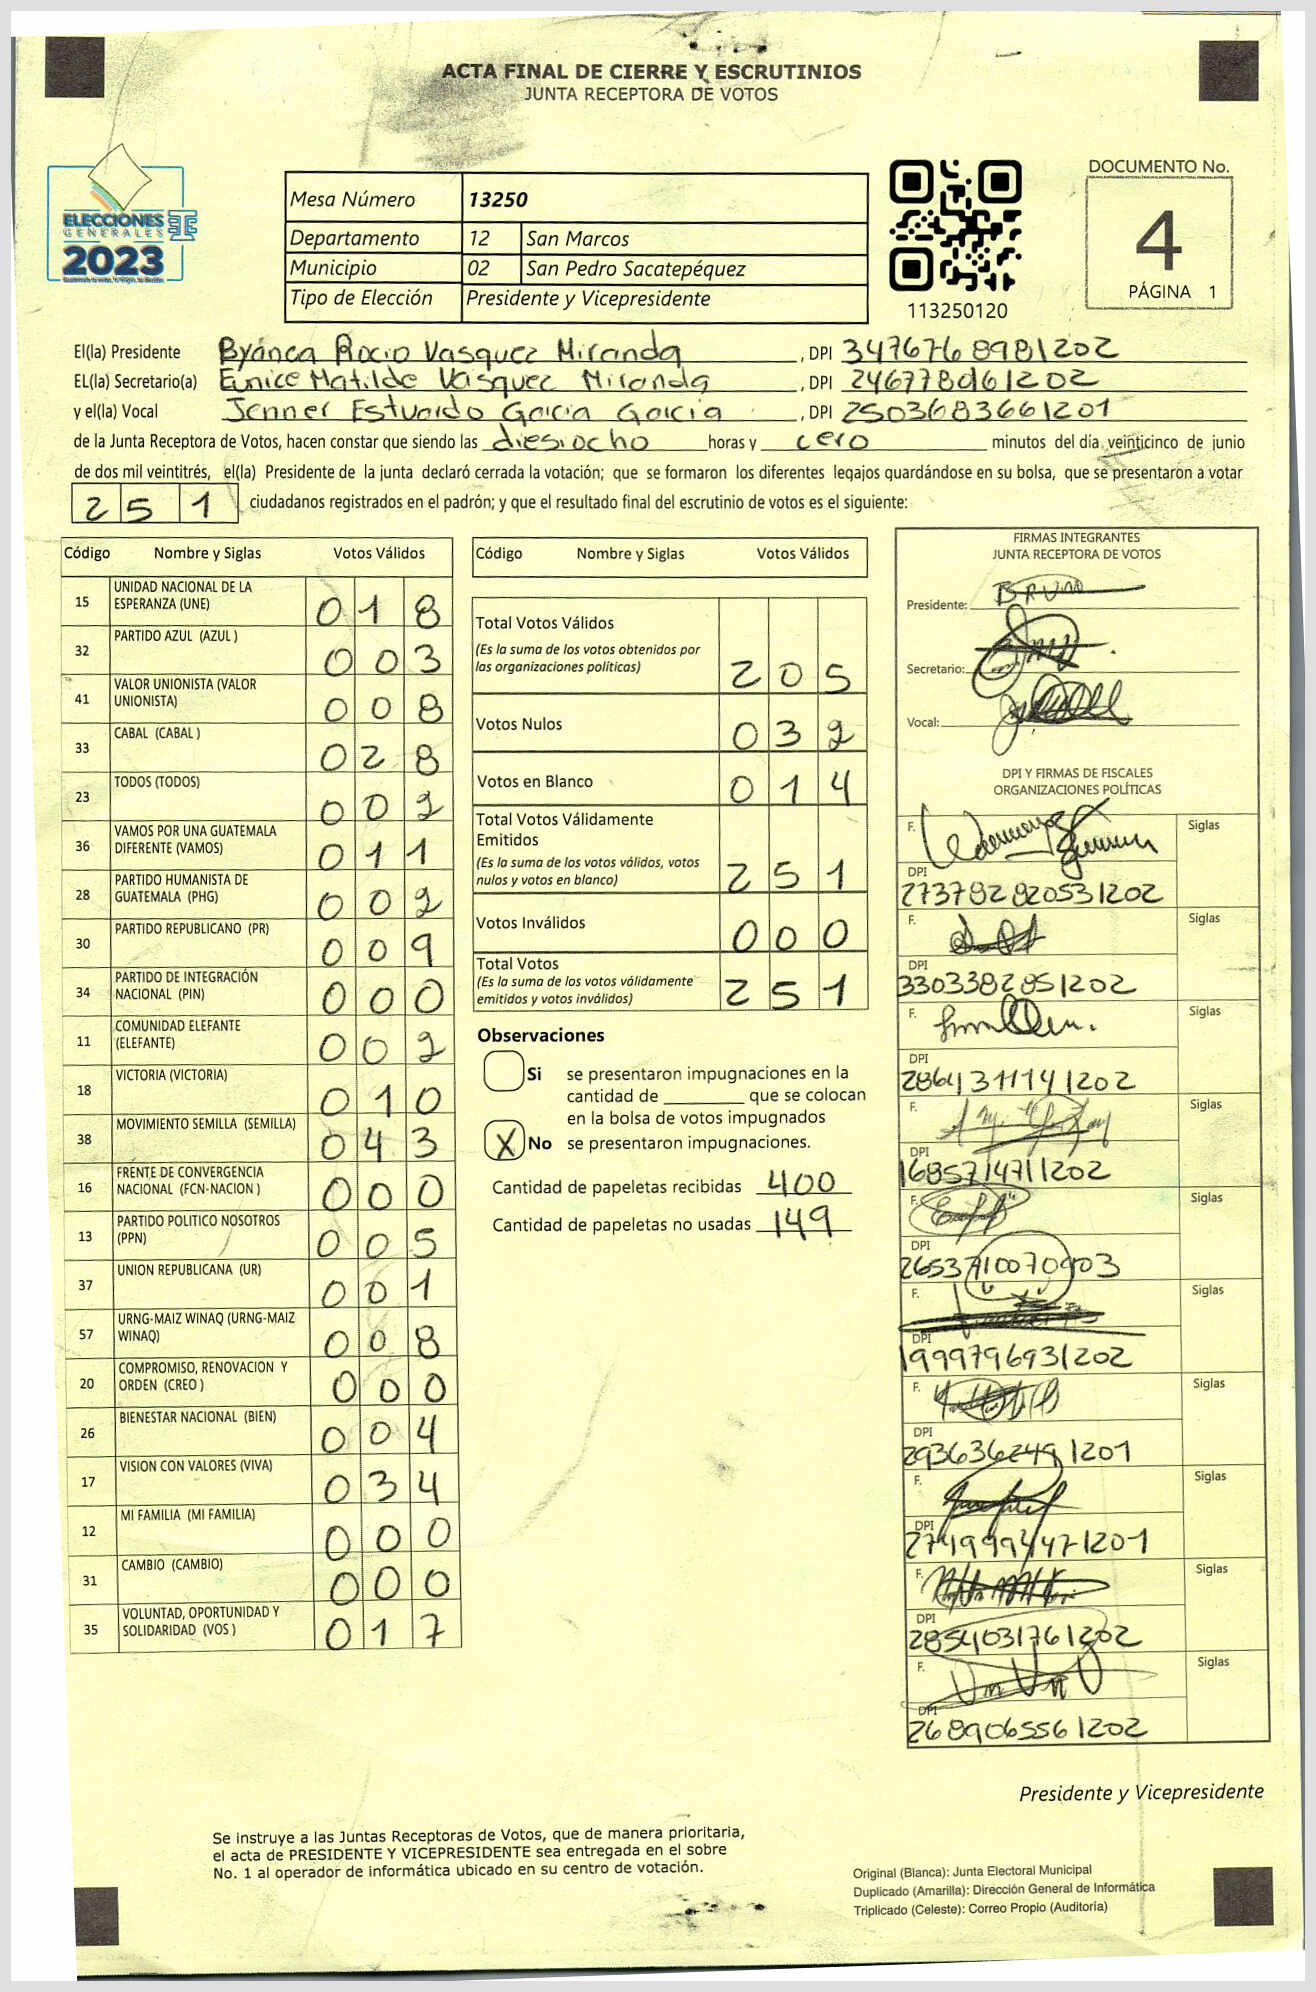 ACTA FINAL DE CIERRE Y ESCRUTINIOS
JUNTA RECEPTORA DE VOTOS
ELECCIONES
GENERALES
2023
Mesa Número 13250
Departamento 12 San Marcos
Municipio 02 San Pedro Sacatepéquez
Tipo de Elección Presidente y Vicepresidente
113250120
DOCUMENTO No.
4
PÁGINA 1
El(la) Presidente Byanca Rocio Vasquez Miranda , DPI 3476768981202
EL(la) Secretario(a) Eunice Matilde Vasquez Miranda , DPI 246778061202
y el(la) Vocal Jenner Estuardo Garcia Garcia , DPI 2503683661201
de la Junta Receptora de Votos, hacen constar que siendo las diesiocho horas y cero minutos del día veinticinco de junio
de dos mil veintitrés, el(la) Presidente de la junta declaró cerrada la votación; que se formaron los diferentes legajos quardándose en su bolsa, que se presentaron a votar
251 ciudadanos registrados en el padrón; y que el resultado final del escrutinio de votos es el siguiente:
Código Nombre y Siglas Votos Válidos
15 UNIDAD NACIONAL DE LA ESPERANZA (UNE) 018
32 PARTIDO AZUL (AZUL ) 003
41 VALOR UNIONISTA (VALOR UNIONISTA) 008
33 CABAL (CABAL ) 028
23 TODOS (TODOS) 002
36 VAMOS POR UNA GUATEMALA DIFERENTE (VAMOS) 011
28 PARTIDO HUMANISTA DE GUATEMALA (PHG) 002
30 PARTIDO REPUBLICANO (PR) 009
34 PARTIDO DE INTEGRACIÓN NACIONAL (PIN) 000
11 COMUNIDAD ELEFANTE (ELEFANTE) 002
18 VICTORIA (VICTORIA) 010
38 MOVIMIENTO SEMILLA (SEMILLA) 043
16 FRENTE DE CONVERGENCIA NACIONAL (FCN-NACION ) 000
13 PARTIDO POLITICO NOSOTROS (PPN) 005
37 UNION REPUBLICANA (UR) 001
57 URNG-MAIZ WINAQ (URNG-MAIZ WINAQ) 008
20 COMPROMISO, RENOVACION Y ORDEN (CREO ) 000
26 BIENESTAR NACIONAL (BIEN) 004
17 VISION CON VALORES (VIVA) 034
12 MI FAMILIA (MI FAMILIA) 000
31 CAMBIO (CAMBIO) 000
35 VOLUNTAD, OPORTUNIDAD Y SOLIDARIDAD (VOS ) 017
Código Nombre y Siglas Votos Válidos
Total Votos Válidos
(Es la suma de los votos obtenidos por
las organizaciones políticas) 205
Votos Nulos 032
Votos en Blanco 014
Total Votos Válidamente
Emitidos
(Es la suma de los votos válidos, votos
nulos y votos en blanco) 251
Votos Inválidos 000
Total Votos
(Es la suma de los votos válidamente
emitidos y votos inválidos) 251
Observaciones
Si se presentaron impugnaciones en la
cantidad de ________ que se colocan
en la bolsa de votos impugnados
X No se presentaron impugnaciones.
Cantidad de papeletas recibidas 400
Cantidad de papeletas no usadas 149
FIRMAS INTEGRANTES
JUNTA RECEPTORA DE VOTOS
Presidente:
Secretario:
Vocal:
DPI Y FIRMAS DE FISCALES
ORGANIZACIONES POLÍTICAS
F. Siglas
DPI
F. Siglas
DPI
3303382851202
F. Siglas
DPI
2864131141202
F. Siglas
DPI
1685714711202
F. Siglas
DPI
F. Siglas
DPI
1999796931202
F. Siglas
DPI
2936362491201
F. Siglas
DPI
2749994471201
F. Siglas
DPI
2854031761202
F. Siglas
DPI
2689065561202
Presidente y Vicepresidente
Se instruye a las Juntas Receptoras de Votos, que de manera prioritaria,
el acta de PRESIDENTE Y VICEPRESIDENTE sea entregada en el sobre
No. 1 al operador de informática ubicado en su centro de votación.
Original (Blanca): Junta Electoral Municipal
Duplicado (Amarilla): Dirección General de Informática
Triplicado (Celeste): Correo Propio (Auditoría)